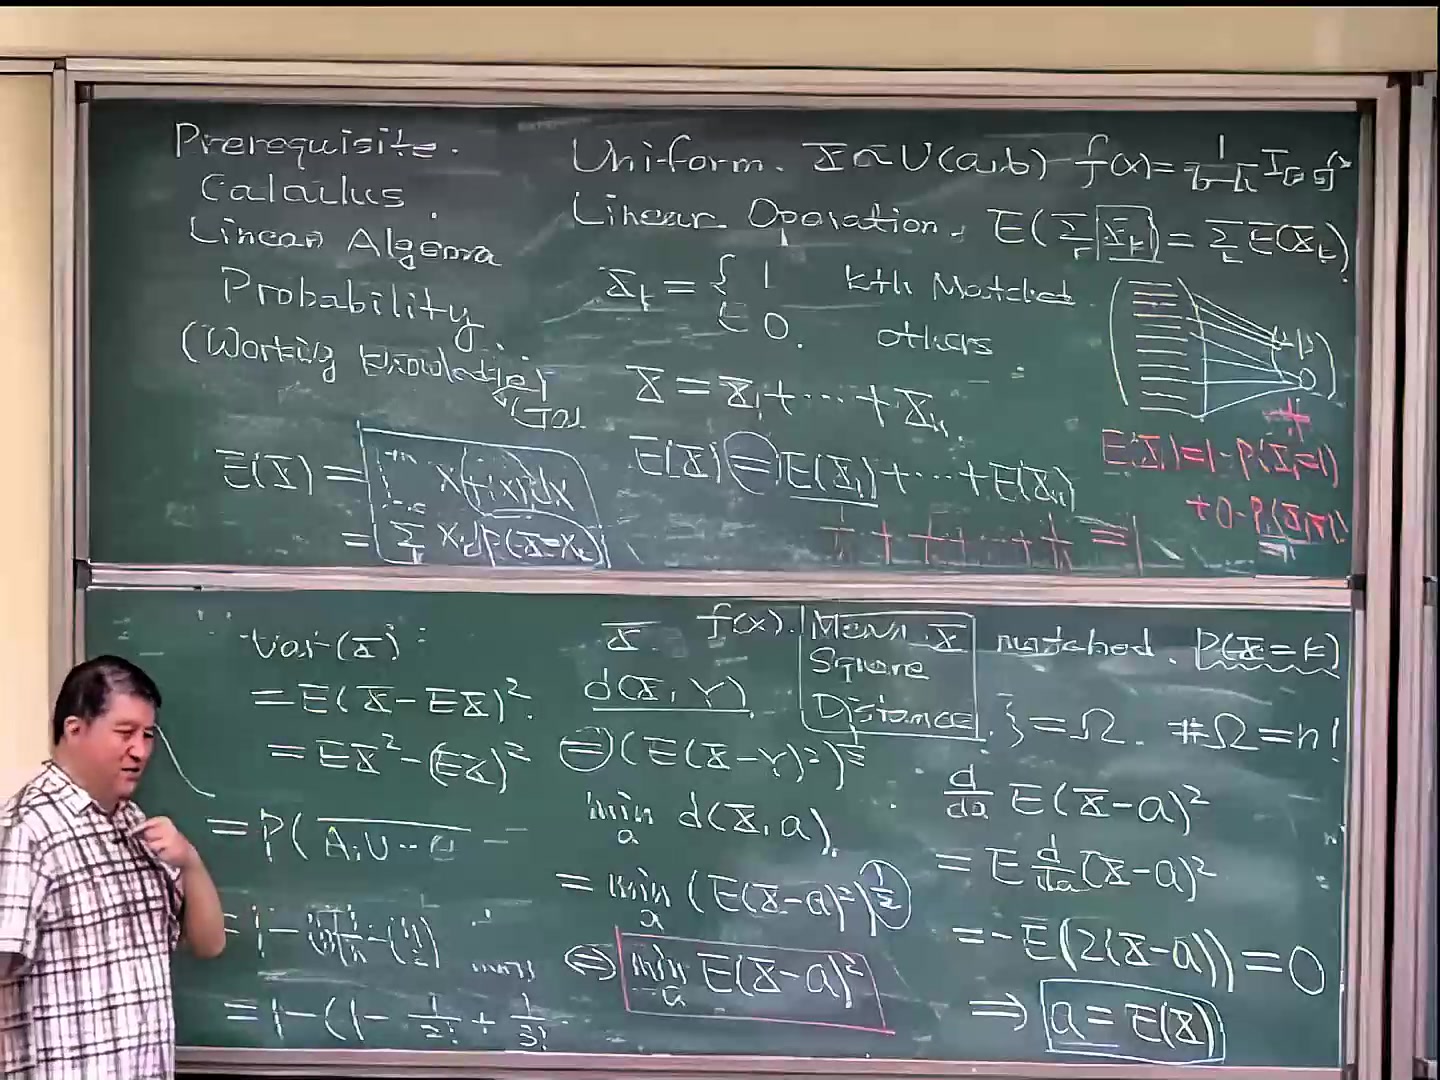 Prerequisite.
Calculus
Linear Algebra
Probability
(Working Knowledge)
E(X) = ∫ x f(x) dx
= Σ x P(X=x_k)
Uniform. X ~ U(a,b) f(x) =
Linear Operation. E(Σ_k X_k) = Σ_k E(X_k)
X_k = { 1 kth Matched
0. others
X = X_1 + ⋯ + X_n
E(X) = E(X_1) + ⋯ + E(X_n)
1/n + 1/n + ⋯ + 1/n = 1
E(X_1) = 1·P(X_1=1)
+ 0·P(
Var(X):
= E(X - EX)²
= EX² - (EX)²
= P(
= 1 -
= 1 - (1 - 1/2! + 1/3!
X. f(x).
Mean
Square
Distance
d(X, Y)
= (E(X-Y)²)^{1/2}
min_a d(X, a)
= min_a (E(X-a)²)^{1/2}
⇔ min_a E(X-a)²
X matched. P(X=k)
} = Ω. #Ω = n!
d/da E(X-a)²
= E d/da (X-a)²
= -E(2(X-a)) = 0
⇒ a = E(X)